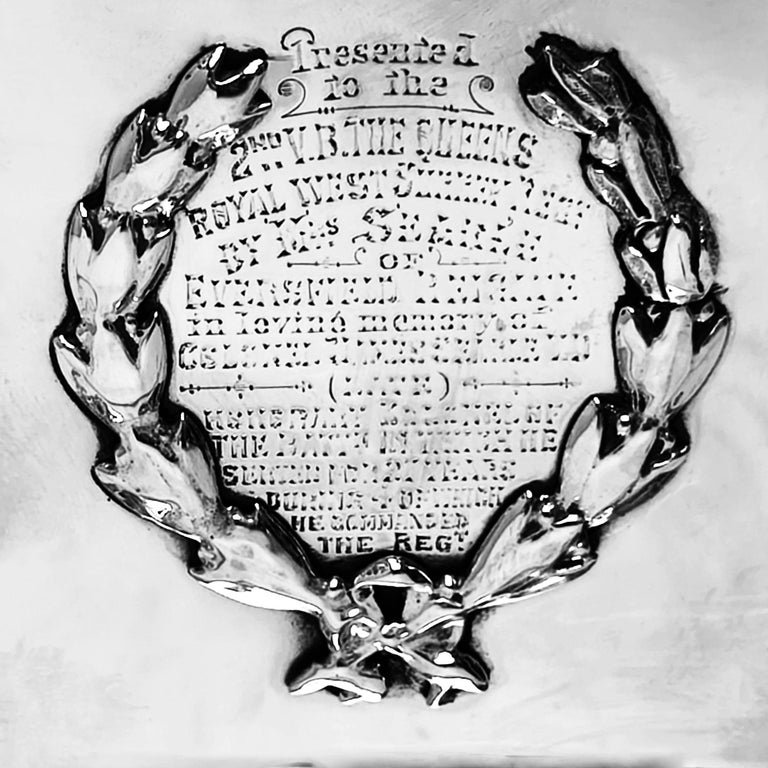 Presented
to the
2ND V.B. THE QUEENS
ROYAL WEST SURREY REGT
BY MRS SEARLE
OF
EVERSFIELD REIGATE
in loving memory of
COLONEL JAMES SEARLE VD
(LATE)
HONORARY COLONEL OF
THE BATTN IN WHICH HE
SERVED FOR 27 YEARS
DURING 4 OF WHICH
HE COMMANDED
THE REGT.